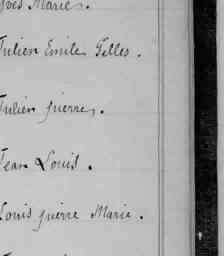 Yves Marie.
Julien Emile Gilles.
Julien pierre.
Jean Louis.
Louis pierre Marie.